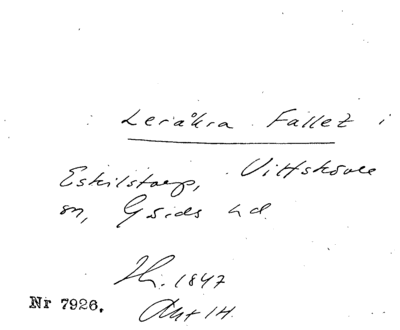 Leråkra Fallet i
Eskilstorp, Vittskövle
sn, Gärds hd.
1847
Nr 7926.